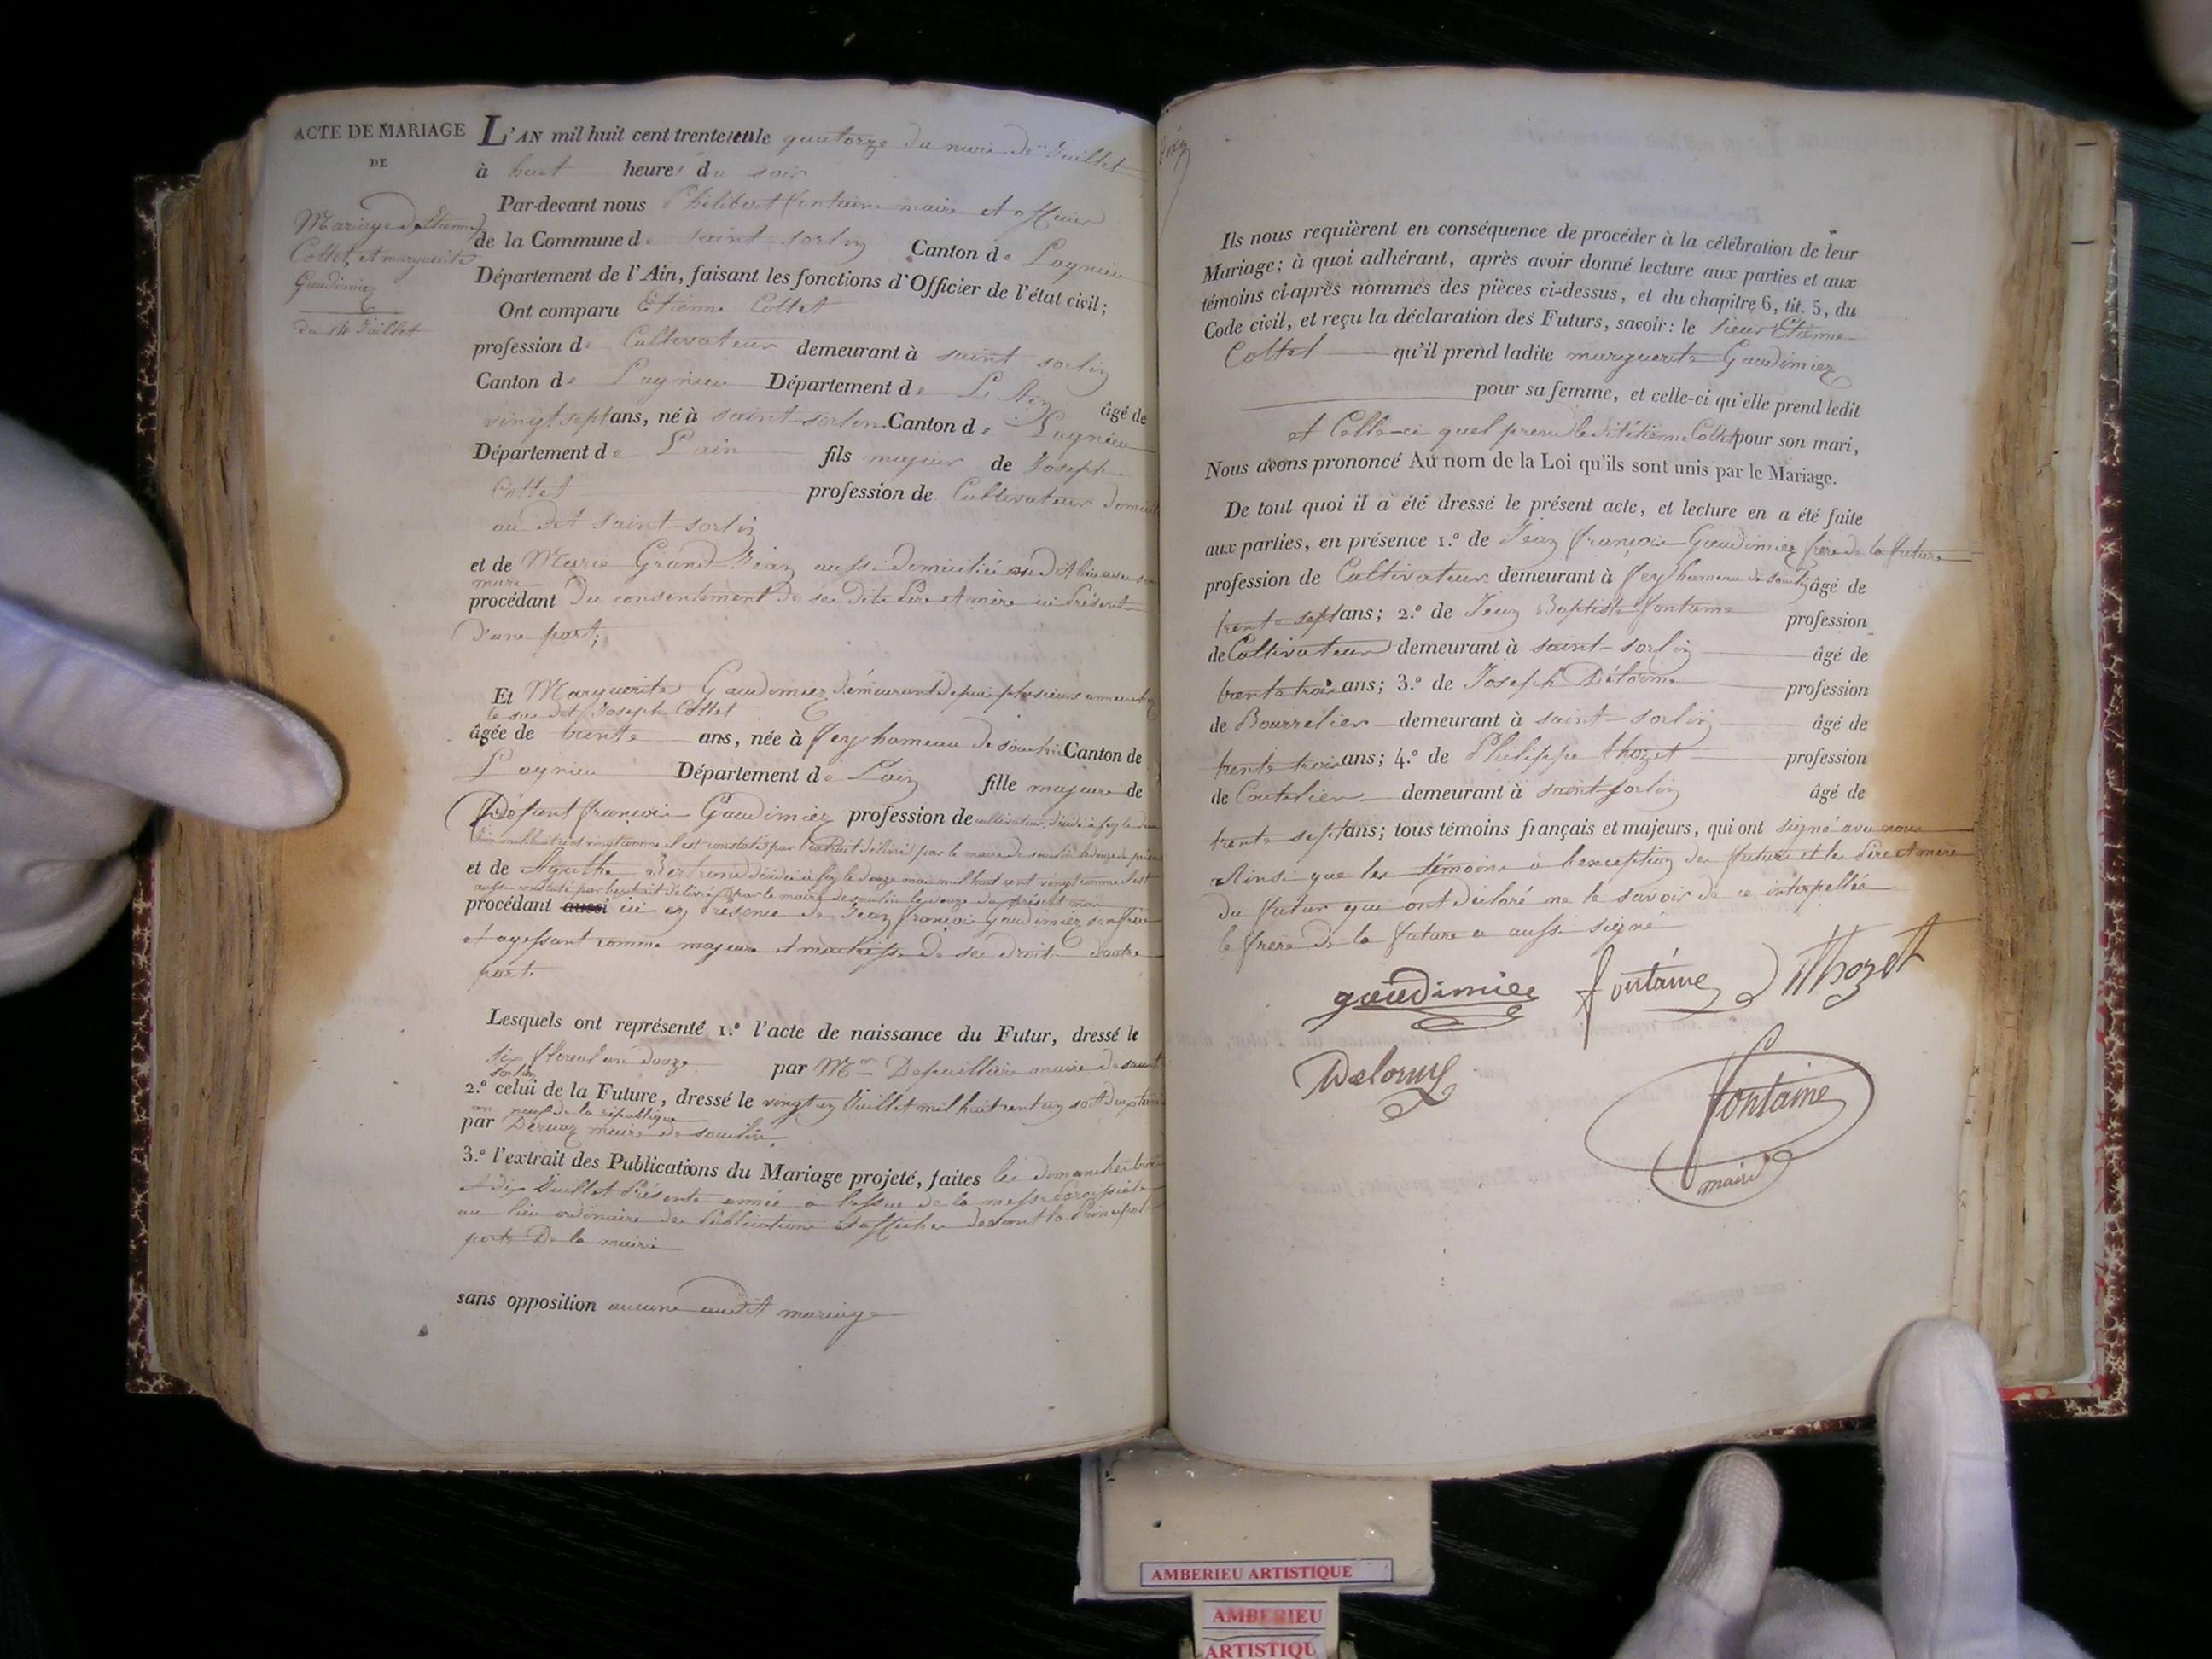 ACTE DE MARIAGE
DE
Mariage d'Etienne
Cottet, et marguerite
Gaudimier
du 14 Juillet
L'AN mil huit cent trente et un le quatorze du mois de Juillet
à huit heures du soir
Par-devant nous Philibert fontaine maire et officier
de la Commune de saint-sorlin Canton de Lagnieu
Département de l'Ain, faisant les fonctions d'Officier de l'état civil;
Ont comparu Etienne Cottet
profession de Cultivateur demeurant à saint sorlin
Canton de Lagnieu Département de L'Ain âgé de
vingt sept ans, né à saint-sorlin Canton de Lagnieu
Département de L'ain fils majeur de Joseph
Cottet profession de Cultivateur domicilié
au dit saint-sorlin
et de Marie Grand-Jean aussi domiciliée au dit lieu avec son
mari
procédant du consentement de ses dits Père et mère ici Présent
d'une part;
Et Marguerite Gaudimier demeurant depuis plusieurs années chez
le sus dit Joseph Cottet
âgée de trente ans, née à fey hameau de Canton de
Lagnieu Département de L'ain fille majeure de
Défunt françois Gaudimier profession de cultivateur, décédé à fey le
mil huit cent vingt comme il est constaté par l'extrait délivré par le maire de le douze du
et de Agathe décédée à fey le douze mai mil huit cent vingt comme il est
aussi constaté par l'extrait délivré par le maire de le douze du présent mois
procédant aussi ici en Présence de Jean françois Gaudimier son frère
et agissant comme majeure et maitresse de ses droits d'autre
part.
Lesquels ont représenté 1.º l'acte de naissance du Futur, dressé le
six floreal an douze par Mr maire de saint
sorlin
2.º celui de la Future, dressé le vingt un Juillet mil huit cent un
an neuf de la république
par maire de
3.º l'extrait des Publications du Mariage projeté, faites les dimanches trois
et dix Juillet Présente année à l'issue de la messe Paroissiale
au lieu ordinaire des Publications et affiches devant la Principale
porte De la mairie
sans opposition aucune audit mariage
Ils nous requièrent en conséquence de procéder à la célébration de leur
Mariage; à quoi adhérant, après avoir donné lecture aux parties et aux
témoins ci-après nommés des pièces ci-dessus, et du chapitre 6, tit. 5, du
Code civil, et reçu la déclaration des Futurs, savoir: le sieur Etienne
Cottet qu'il prend ladite marguerite Gaudimier
pour sa femme, et celle-ci qu'elle prend ledit
et Celle-ci quel prend le dit étienne Cottet pour son mari,
Nous avons prononcé Au nom de la Loi qu'ils sont unis par le Mariage.
De tout quoi il a été dressé le présent acte, et lecture en a été faite
aux parties, en présence 1.º de Jean françois Gaudimier frère de la future
profession de Cultivateur demeurant à fey hameau de âgé de
trente sept ans; 2.º de Jean Baptiste fontaine profession
de Cultivateur demeurant à saint-sorlin âgé de
trente trois ans; 3.º de Joseph Délorme profession
de Bourrelier demeurant à saint-sorlin âgé de
trente trois ans; 4.º de Philippe thozet profession
de Coutelier demeurant à saint-sorlin âgé de
trente sept ans; tous témoins français et majeurs, qui ont signé avec nous
Ainsi que les témoins à l'exception des futurs et les Père et mère
du futur qui ont déclaré ne le savoir de ce interpellés
le frère de la future a aussi signé
gaudimier fontaine Thozet
Delorme
fontaine
maire
AMBERIEU ARTISTIQUE
AMBERIEU
ARTISTIQU